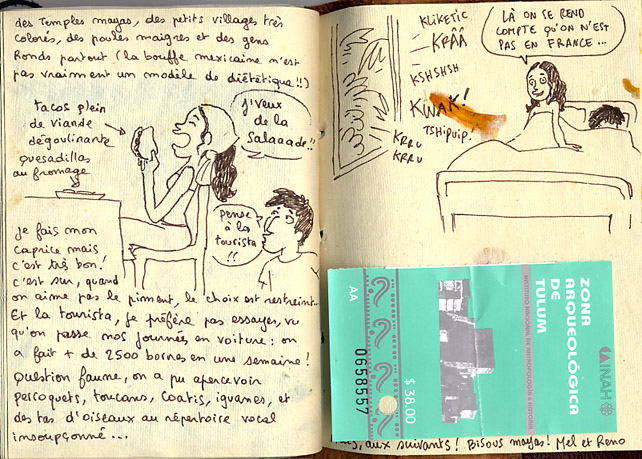 des temples mayas, des petits villages très
colorés, des poules maigres et des gens
Ronds partout (la bouffe mexicaine n'est
pas vraiment un modèle de diététique !!)
tacos plein
de viande
dégoulinante
quesadillas
au fromage
J'veux
de la
Salaaade !!
Pense
à la
tourista
!!
Je fais mon
caprice mais
c'est très bon !
c'est sur, quand
on aime pas le piment, le choix est restreint.
Et la tourista, je préfère pas essayer, vu
qu'on passe nos journées en voiture : on
a fait + de 2500 bornes en une semaine !
Question faune, on a pu apercevoir
perroquets, toucans, coatis, iguanes, et
des tas d'oiseaux au répertoire vocal
insoupçonné...
KLIKETIC
KRÂÂ
KSHSHSH
KWAK!
TSHIPUIP.
KRRU
KRRU
LÀ ON SE REND
COMPTE QU'ON N'EST
PAS EN FRANCE...
ZONA
ARQUEOLÓGICA
DE
TULUM
INSTITUTO NACIONAL DE ANTROPOLOGIA E HISTORIA
INAH
$ 38.00
AA
0658557
aux suivants ! Bisous mayas ! Mel et Reno